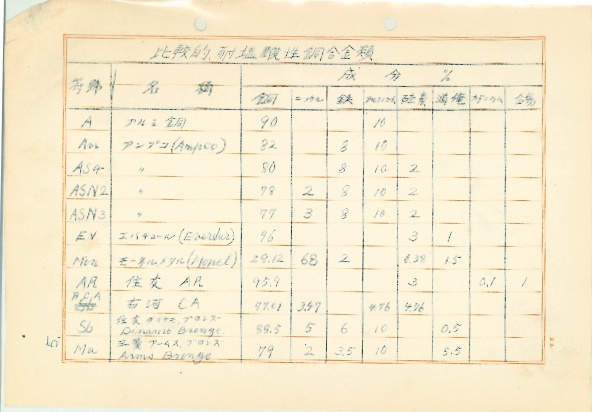 比較的耐塩酸性銅合金類
符號 名稱 成分 %
銅 ニッケル 鉄 アルミニウム 硅素 満俺 錫
A アルミ銅 90 10
Am アンプコ(Ampco) 82 8 10
AS4 〃 80 8 10 2
ASN2 〃 78 2 8 10 2
ASN3 〃 77 3 8 10 2
EV エバヂュール(Everdur) 96 3 1
Mon モーネルメタル(Monel) 28.12 68 2 0.38 1.5
AR 住友 AR 95.9 3 0.1 1
古河 LA 3.47 4.76 4.76
Sb 住友ダイナモ、ブロンズ Dinamo Bronze. 88.5 5 6 10 0.5
Ma 三菱アームス、ブロンズ Arms Bronze 79 2 3.5 10 5.5